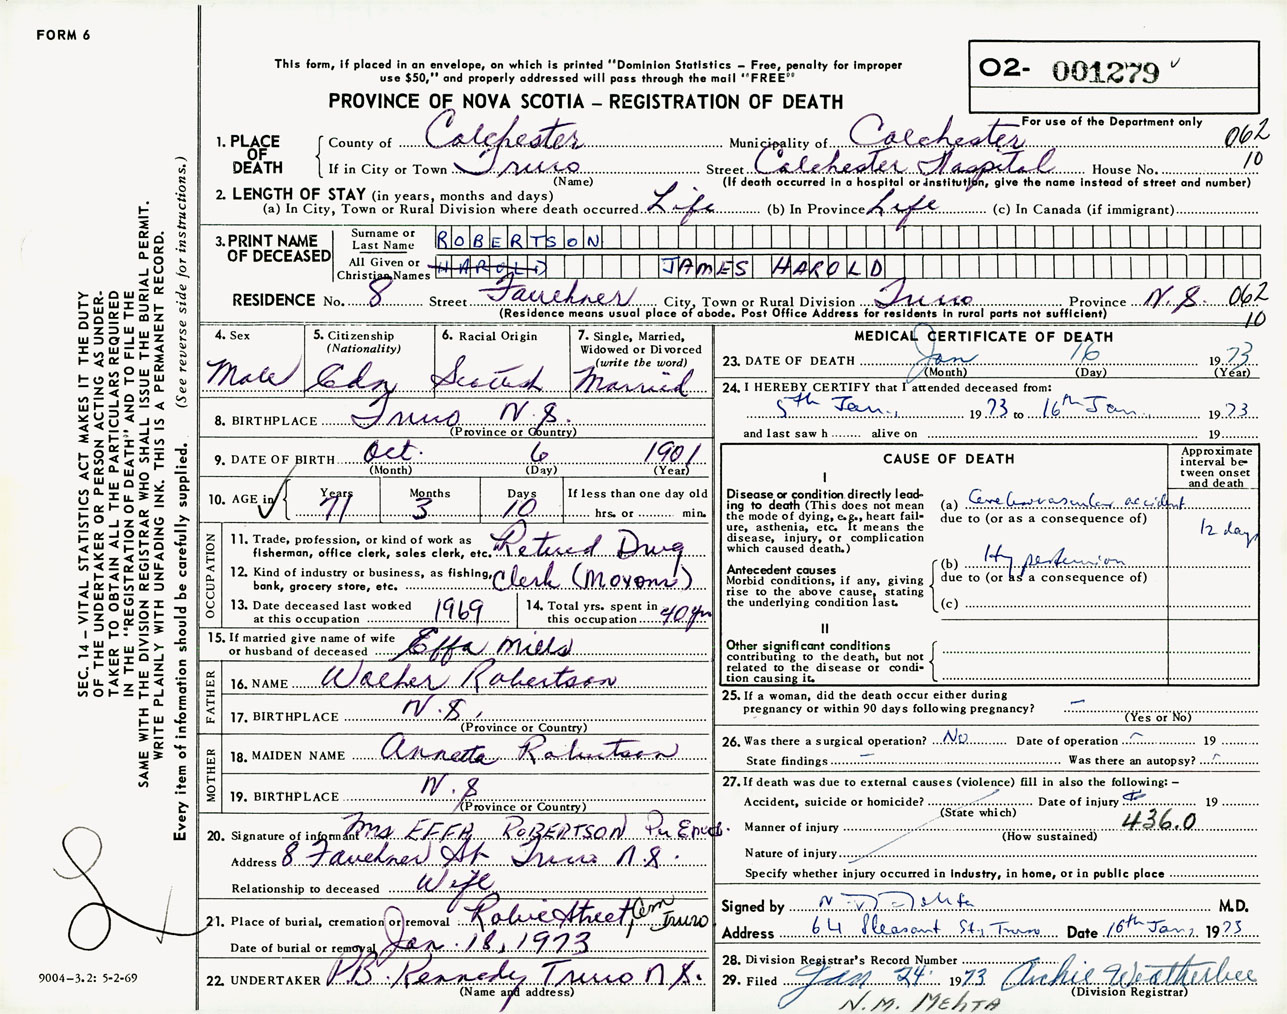 FORM 6
This form, if placed in an envelope, on which is printed "Dominion Statistics – Free, penalty for improper
use $50," and properly addressed will pass through the mail "FREE"
O2- 001279
For use of the Department only
PROVINCE OF NOVA SCOTIA – REGISTRATION OF DEATH
1. PLACE OF DEATH
County of Colchester Municipality of Colchester 062
If in City or Town Truro Street Colchester Hospital House No. 10
(Name) (If death occurred in a hospital or institution, give the name instead of street and number)
2. LENGTH OF STAY (in years, months and days)
(a) In City, Town or Rural Division where death occurred Life (b) In Province Life (c) In Canada (if immigrant)
3. PRINT NAME OF DECEASED
Surname or Last Name ROBERTSON
All Given or Christian Names HAROLD JAMES HAROLD
RESIDENCE No. 8 Street Faulkner City, Town or Rural Division Truro Province N.S. 062
(Residence means usual place of abode. Post Office Address for residents in rural parts not sufficient) 10
4. Sex
Male
5. Citizenship
(Nationality)
Cdn
6. Racial Origin
Scottish
7. Single, Married,
Widowed or Divorced
(write the word)
Married
8. BIRTHPLACE Truro N.S.
(Province or Country)
9. DATE OF BIRTH Oct. 6 1901
(Month) (Day) (Year)
10. AGE in Years Months Days If less than one day old
71 3 10 hrs. or min.
OCCUPATION
11. Trade, profession, or kind of work as
fisherman, office clerk, sales clerk, etc. Retired Drug
12. Kind of industry or business, as fishing,
bank, grocery store, etc. Clerk (Moxons)
13. Date deceased last worked
at this occupation 1969
14. Total yrs. spent in
this occupation 40 yrs
15. If married give name of wife
or husband of deceased Effa Mills
FATHER
16. NAME Walker Robertson
17. BIRTHPLACE N.S.
(Province or Country)
MOTHER
18. MAIDEN NAME Annetta Robertson
19. BIRTHPLACE N.S
(Province or Country)
20. Signature of informant Mrs EFFA ROBERTSON
Address 8 Faulkner St Truro N.S.
Relationship to deceased Wife
21. Place of burial, cremation or removal Robie Street Cem Truro
Date of burial or removal Jan. 18, 1973
22. UNDERTAKER P.B. Kennedy Truro N.S.
(Name and address)
MEDICAL CERTIFICATE OF DEATH
23. DATE OF DEATH Jan 16 1973
(Month) (Day) (Year)
24. I HEREBY CERTIFY that I attended deceased from:
5th Jan., 1973 to 16th Jan. 1973
and last saw h alive on 19
CAUSE OF DEATH
Approximate
interval be-
tween onset
and death
I
Disease or condition directly lead-
ing to death (This does not mean
the mode of dying, e.g., heart fail-
ure, asthenia, etc. It means the
disease, injury, or complication
which caused death.)
(a) Cerebrovascular accident
due to (or as a consequence of)
12 days
Antecedent causes
Morbid conditions, if any, giving
rise to the above cause, stating
the underlying condition last.
(b) Hypertension
due to (or as a consequence of)
(c)
II
Other significant conditions
contributing to the death, but not
related to the disease or condi-
tion causing it.
25. If a woman, did the death occur either during
pregnancy or within 90 days following pregnancy? –
(Yes or No)
26. Was there a surgical operation? No Date of operation 19
State findings – Was there an autopsy?
27. If death was due to external causes (violence) fill in also the following: –
Accident, suicide or homicide? Date of injury 19
(State which)
Manner of injury 436.0
(How sustained)
Nature of injury
Specify whether injury occurred in industry, in home, or in public place
Signed by N. M. Mehta M.D.
Address 64 Pleasant St., Truro Date 16th Jan. 1973
28. Division Registrar's Record Number
29. Filed Jan 24 1973 Archie Weatherbee
(Division Registrar)
N.M. MEHTA
SEC. 14 – VITAL STATISTICS ACT MAKES IT THE DUTY
OF THE UNDERTAKER OR PERSON ACTING AS UNDER-
TAKER TO OBTAIN ALL THE PARTICULARS REQUIRED
IN THE "REGISTRATION OF DEATH" AND TO FILE THE
SAME WITH THE DIVISION REGISTRAR WHO SHALL ISSUE THE BURIAL PERMIT.
WRITE PLAINLY WITH UNFADING INK. THIS IS A PERMANENT RECORD.
Every item of information should be carefully supplied. (See reverse side for instructions.)
9004-3.2: 5-2-69